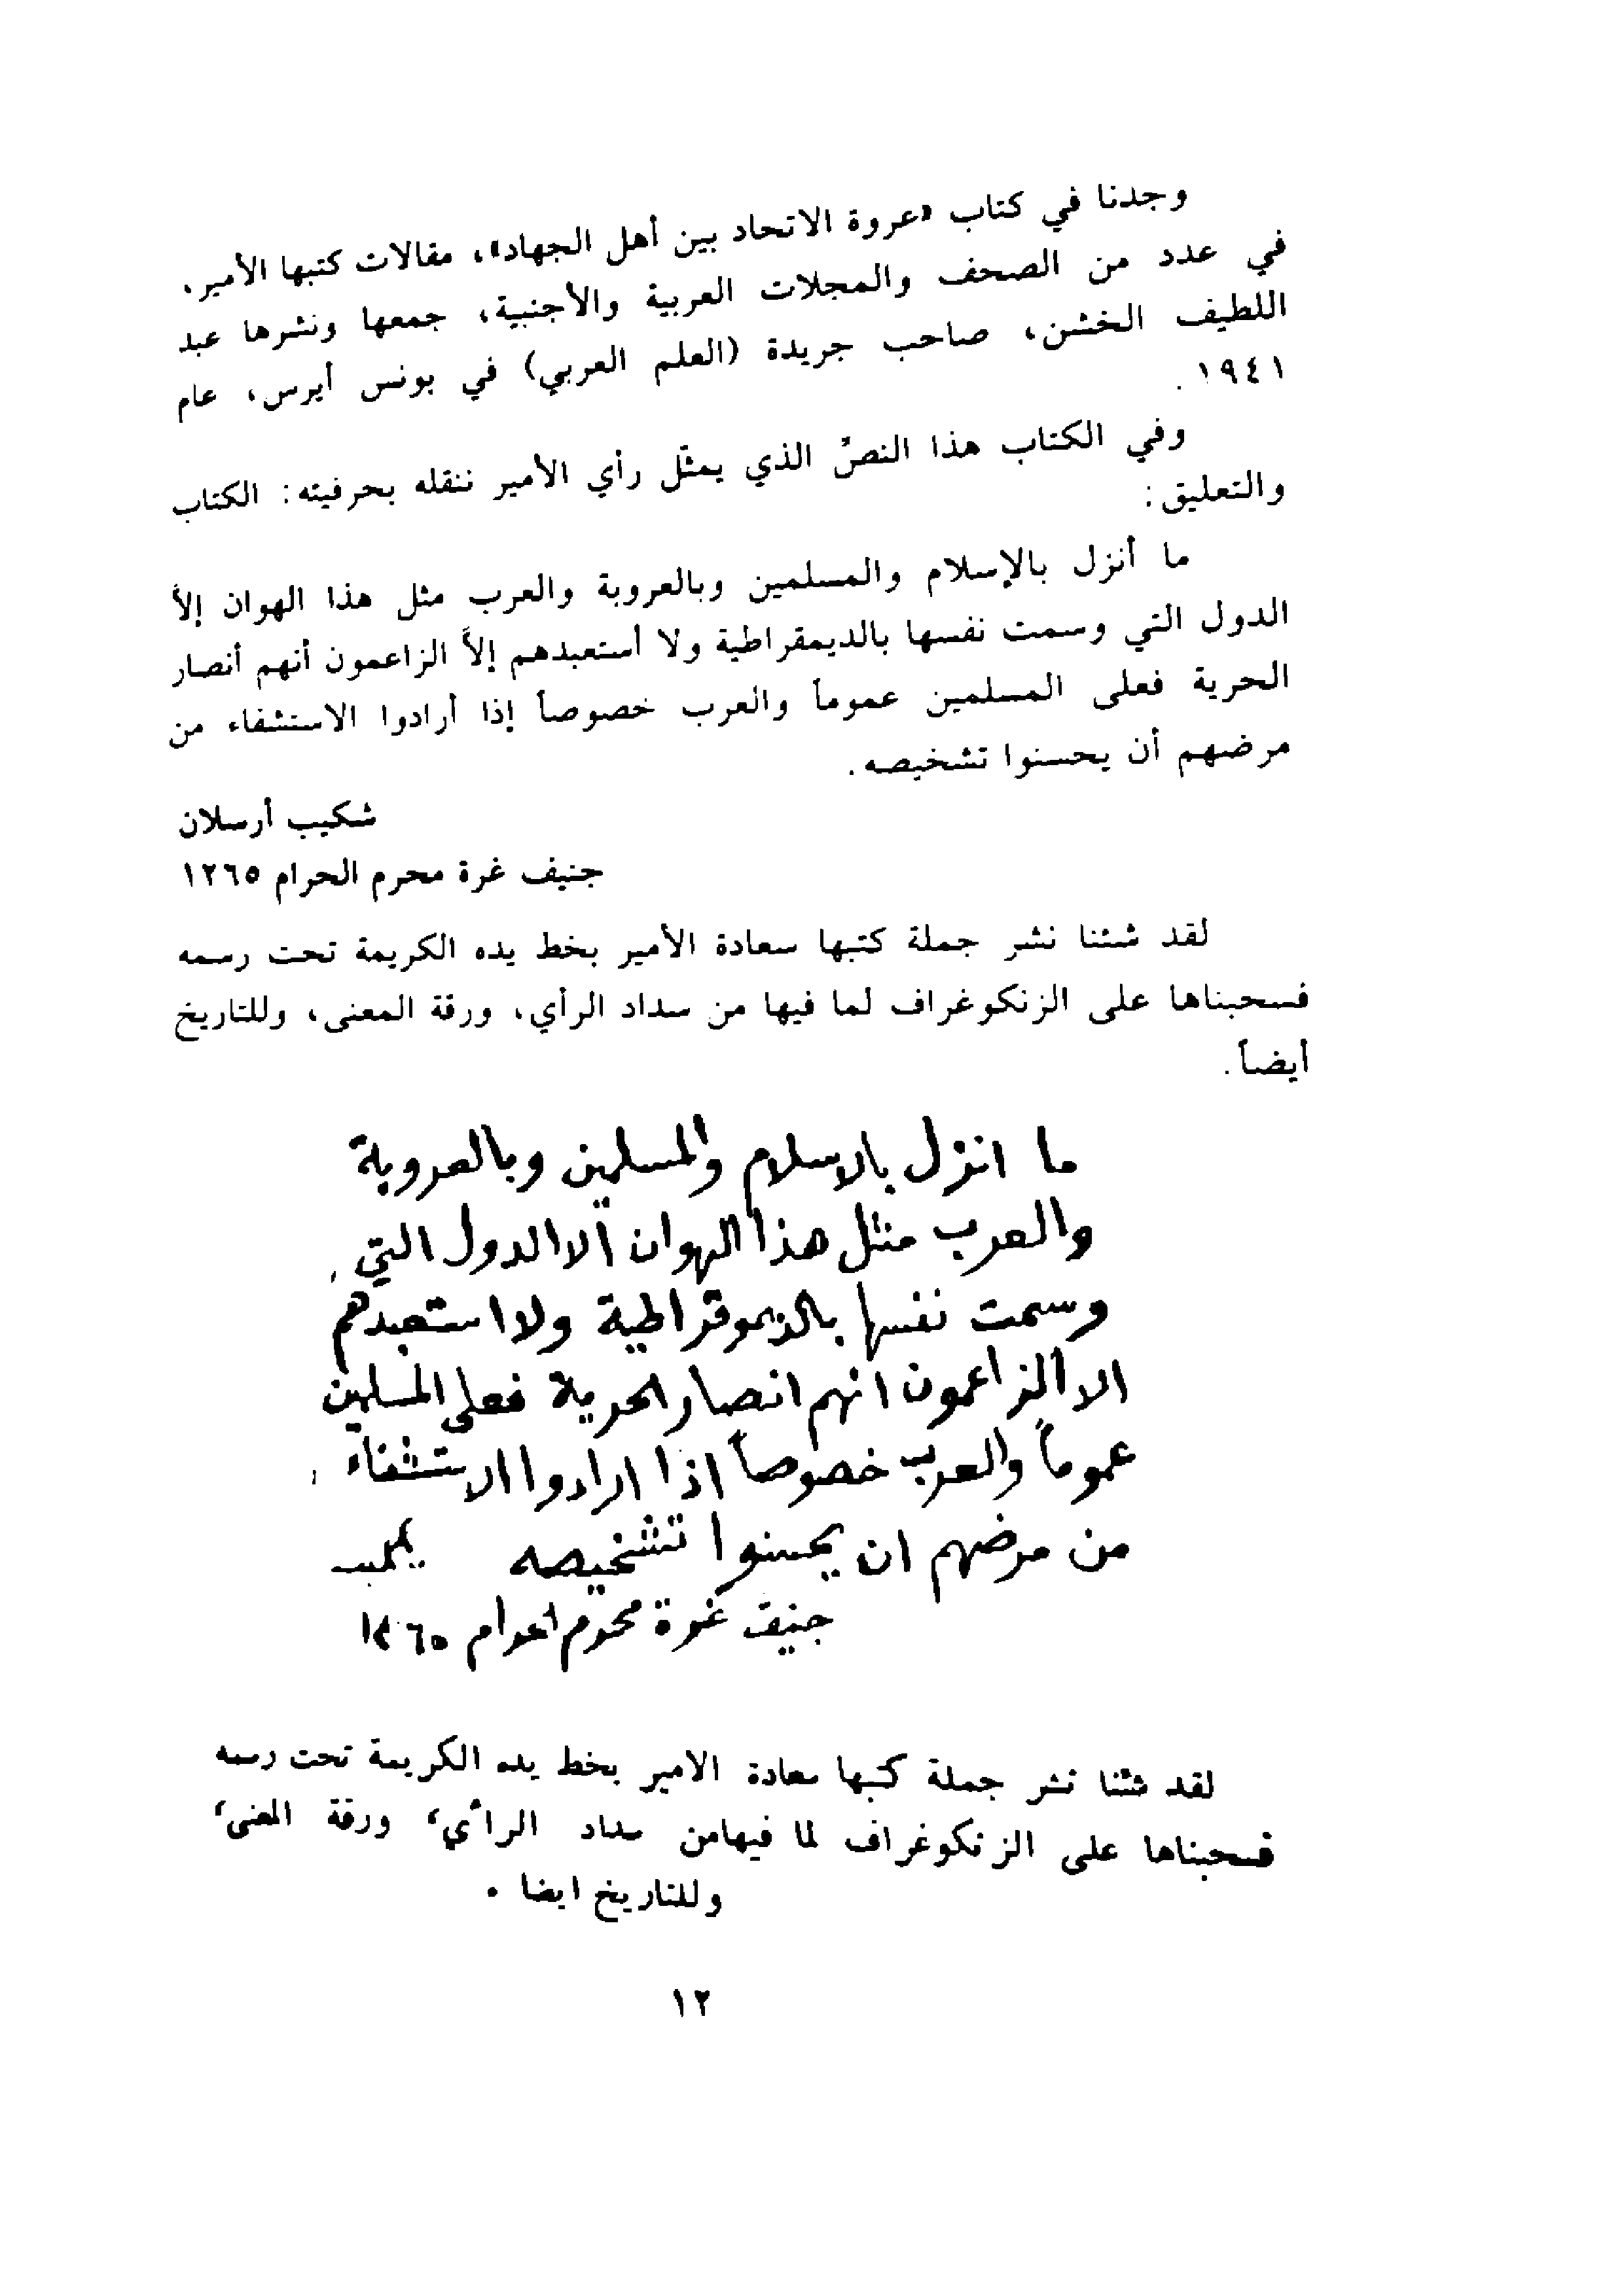 وجدنا في كتاب «عروة الاتحاد بين أهل الجهاد»، مقالات كتبها الأمير،
في عدد من الصحف والمجلات العربية والأجنبية، جمعها ونشرها عبد
اللطيف الخشن، صاحب جريدة (العلم العربي) في بونس أيرس، عام
١٩٤١.
وفي الكتاب هذا النصّ الذي يمثّل رأي الأمير ننقله بحرفيته: الكتاب
والتعليق:
ما أنزل بالإسلام والمسلمين وبالعروبة والعرب مثل هذا الهوان إلاَّ
الدول التي وسمت نفسها بالديمقراطية ولا أستعبدهم إلاَّ الزاعمون أنهم أنصار
الحرية فعلى المسلمين عموماً والعرب خصوصاً إذا أرادوا الاستشفاء من
مرضهم أن يحسنوا تشخيصه.
شكيب أرسلان
جنيف غرة محرم الحرام ١٢٦٥
لقد شئنا نشر جملة كتبها سعادة الأمير بخط يده الكريمة تحت رسمه
فسحبناها على الزنكوغراف لما فيها من سداد الرأي، ورقة المعنى، وللتاريخ
أيضاً.
ما انزل بالاسلام والمسلمين وبالعروبة
والعرب مثل هذا الهوان الا الدول التي
وسمت نفسها بالديموقراطية ولا استعبدهم
الا الزاعمون انهم انصار الحرية فعلى المسلمين
عموماً والعرب خصوصاً اذا ارادوا الاستشفاء
من مرضهم ان يحسنوا تشخيصه
جنيف غرة محرم الحرام
لقد شئنا نشر جملة كتبها سعادة الامير بخط يده الكريمة تحت رسمه
فسحبناها على الزنكوغراف لما فيها من سداد الرأي، ورقة المعنى،
وللتاريخ ايضا .
١٢